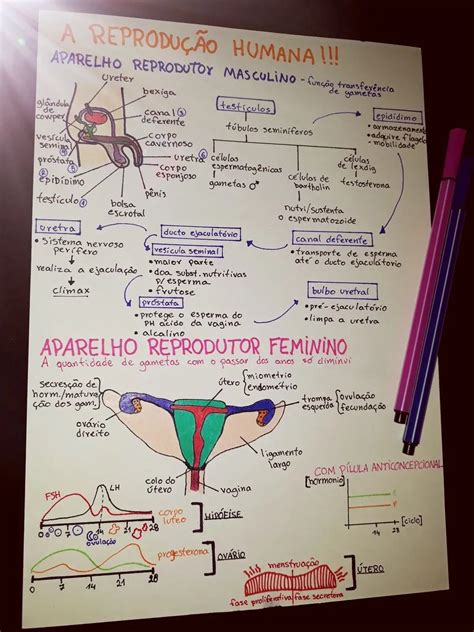 A REPRODUÇÃO HUMANA!!!
APARELHO REPRODUTOR MASCULINO - função transferência
de gametas
ureter
bexiga
glândula
de cowper
canal
deferente
vesícula
seminal
corpo
cavernoso
próstata
uretra
epidídimo
corpo
esponjoso
testículo
bolsa
escrotal
pênis
testículos
túbulos seminíferos
células
espermatogênicas
gametas ♂
células
de
bartholin
nutri/sustenta
o espermatozoide
células
de leydig
testosterona
epidídimo
• armazenamento
• adquire flagelo
• mobilidade
uretra
• sistema nervoso
perífero
realiza a ejaculação
climax
ducto ejaculatório
vesícula seminal
• maior parte
• doa subst. nutritivas
p/ esperma
• frutose
canal deferente
• transporte de esperma
até o ducto ejaculatório
próstata
• protege o esperma do
PH ácido da vagina
• alcalino
bulbo uretral
• pré-ejaculatório
• limpa a uretra
APARELHO REPRODUTOR FEMININO
A quantidade de gametas com o passar dos anos só diminui
secreção de
horm./matura
ção dos gam.
útero
miométrio
endométrio
trompa
esquerda
ovulação
fecundação
ovário
direito
ligamento
largo
colo do
útero
vagina
COM PÍLULA ANTICONCEPCIONAL
[hormônio]
[ciclo]
FSH
LH
0
7
14
21
28
ovulação
corpo
lúteo
HIPÓFISE
progesterona
OVÁRIO
0
7
14
21
28
menstruação
fase proliferativa
fase secretora
ÚTERO